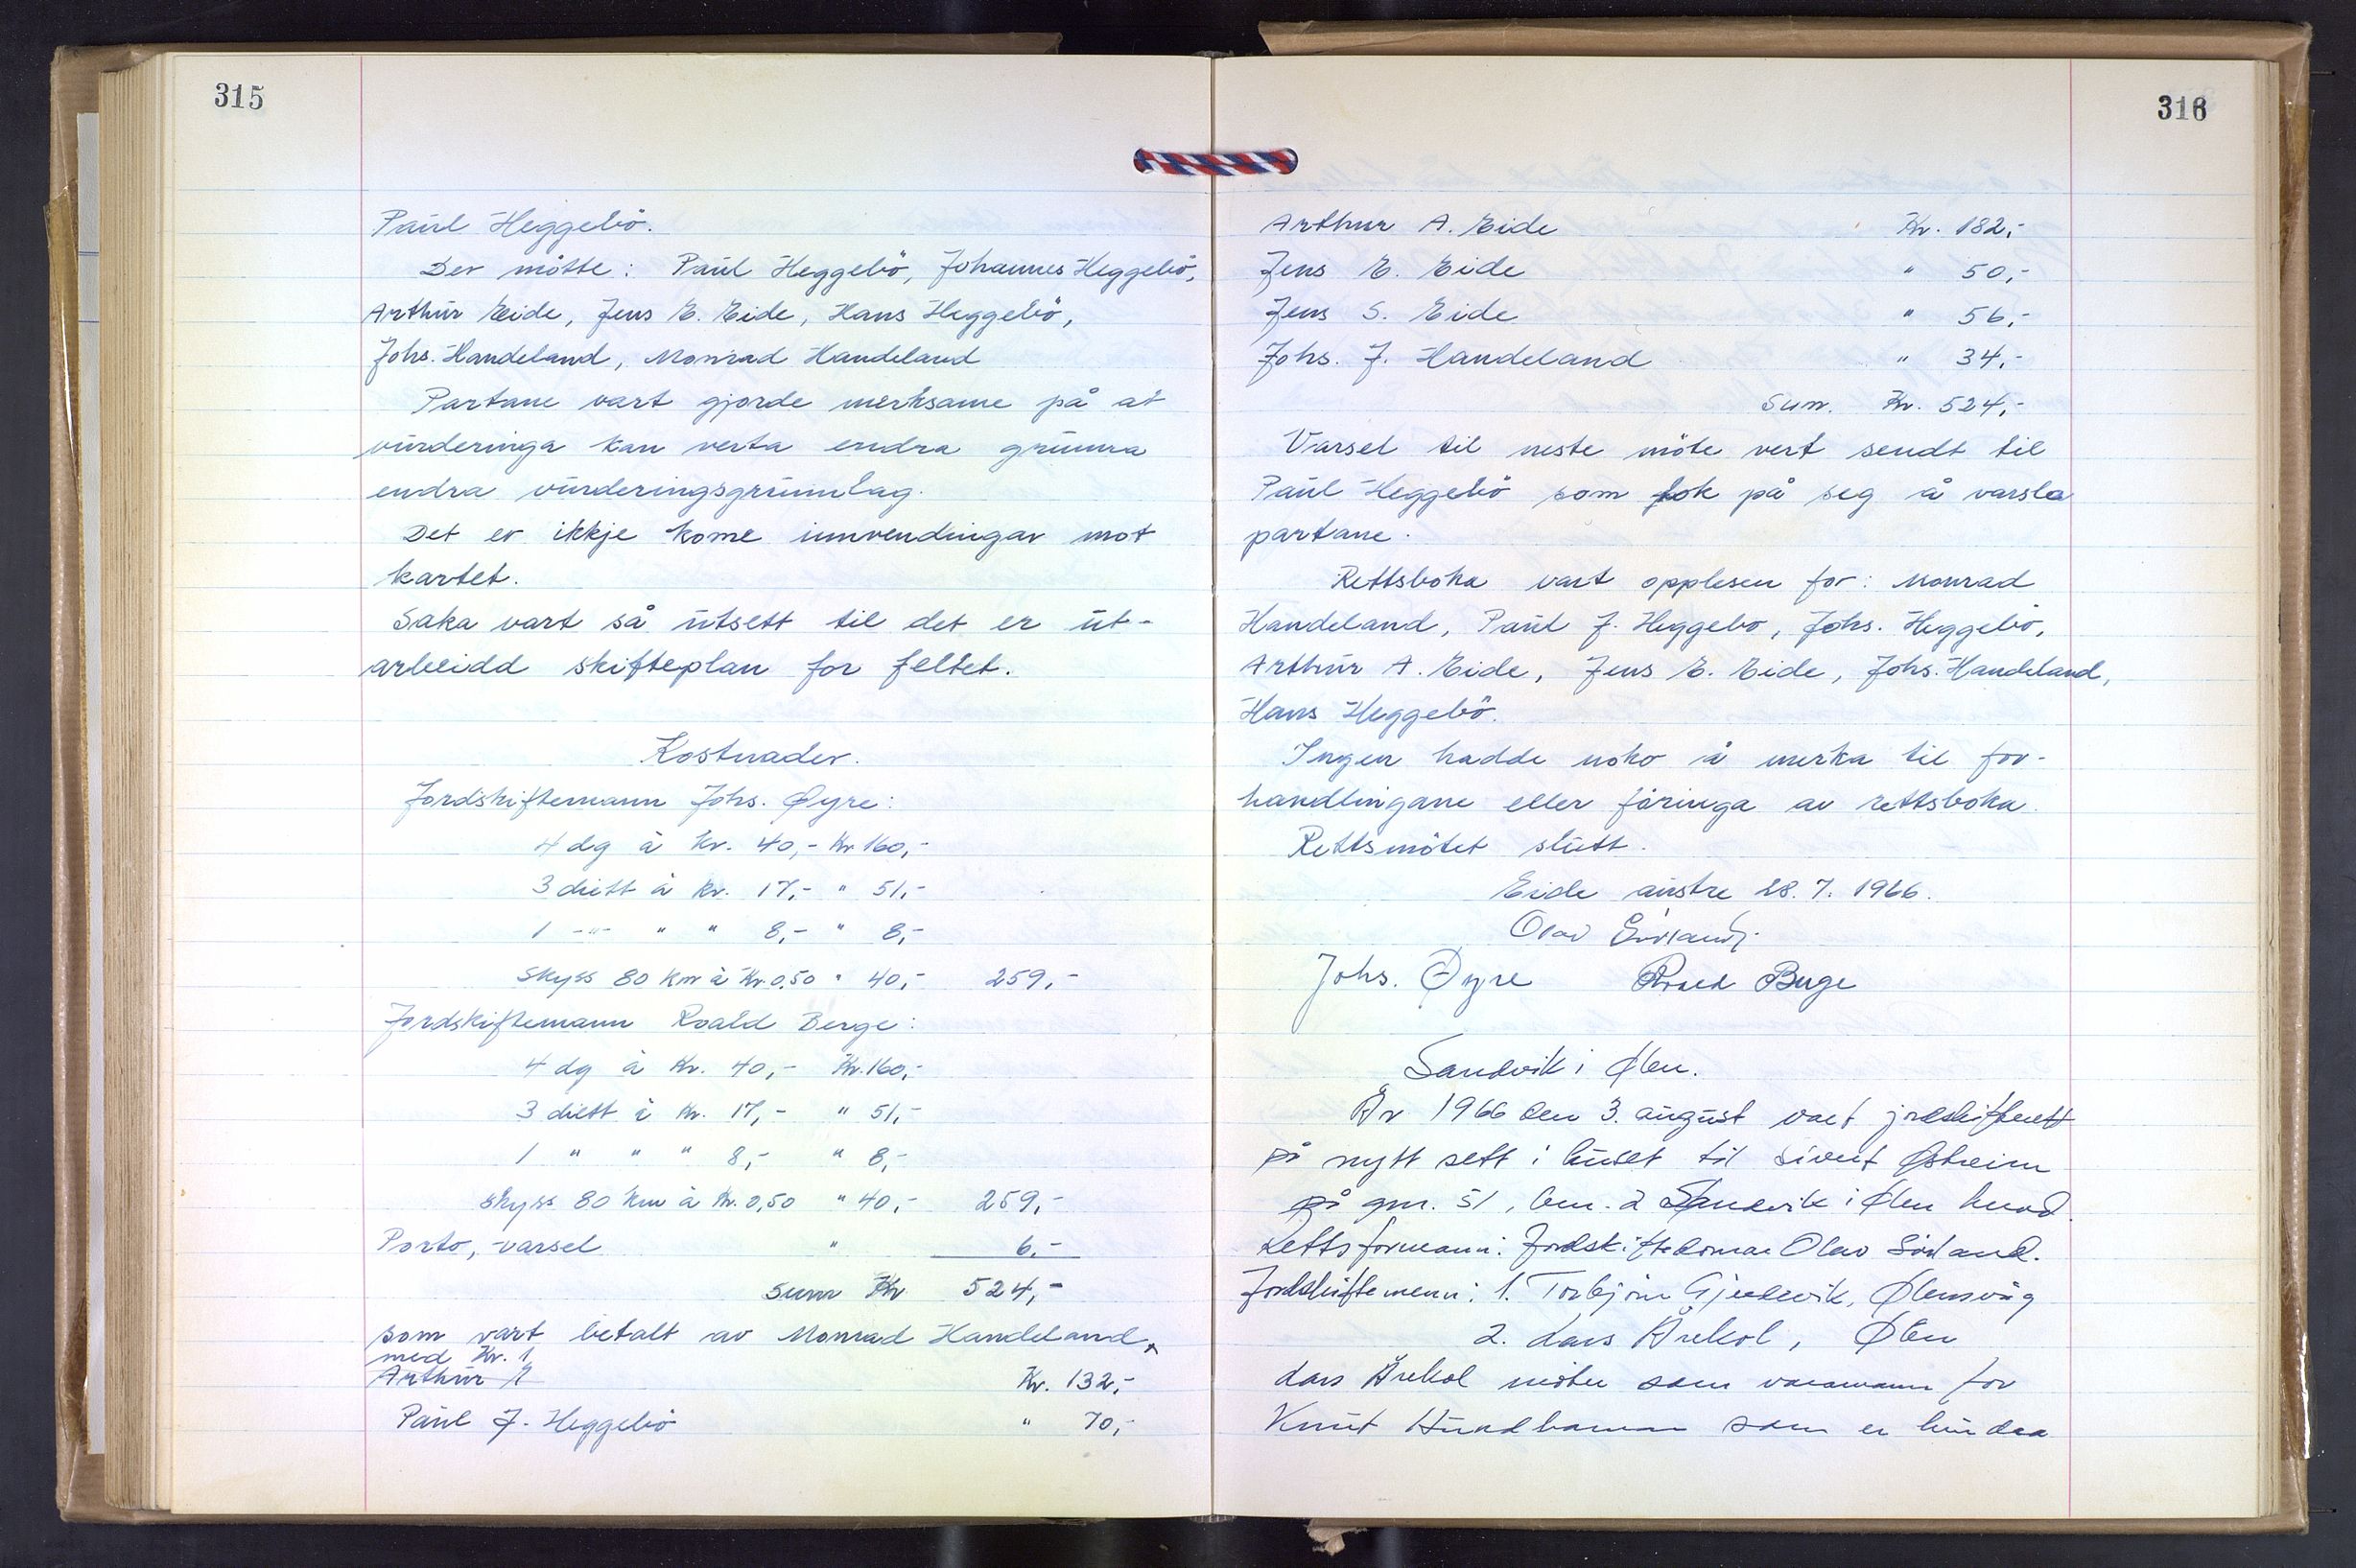 315
Paul Heggebö.
Der møtte: Paul Heggebö, Johannes Heggebö,
Arthur Eide, Jens E. Eide, Hans Heggebö,
Johs. Handeland, Monrad Handeland
Partane vart gjorde merksame på at
vurderinga kan verta endra grunna
endra vurderingsgrunnlag.
Det er ikkje kome innvendingar mot
kartet.
Saka vart så utsett til det er ut-
arbeidd skifteplan for feltet.
Kostnader.
Jordskiftemann Johs. Øyre:
4 dg à kr. 40,- Kr 160,-
3 diett à kr. 17,- " 51,-
1 -"- " " 8,- " 8,-
Skyss 80 km à Kr. 0,50 " 40,- 259,-
Jordskiftemann Roald Berge:
4 dg à Kr. 40,- Kr. 160,-
3 diett à Kr. 17,- " 51,-
1 " " " 8,- " 8,-
Skyss 80 km à Kr. 0,50 " 40,- 259,-
Porto, varsel " 6,-
Sum Kr 524,-
som vart betalt av Monrad Handeland,
med Kr. 1
Arthur
Kr. 132,-
Paul J. Heggebö " 70,-
316
Arthur A. Eide Kr. 182,-
Jens E. Eide " 50,-
Jens S. Eide " 56,-
Johs. J. Handeland " 34,-
Sum. Kr. 524,-
Varsel til neste möte vert sendt til
Paul Heggebö som tok på seg å varsla
partane.
Rettsboka vart opplesen for: Monrad
Handeland, Paul J. Heggebo, Johs. Heggebö,
Arthur A. Eide, Jens E. Eide, Johs. Handeland,
Hans Heggebö.
Ingen hadde noko å merka til for-
handlingane eller föringa av rettsboka.
Rettsmötet slutt.
Eide austre 28. 7. 1966.
Olav Sørland
Johs. Øyre Roald Berge
Sandvik i Ølen.
År 1966 den 3. august vart jordskifterett
på nytt sett i huset til Sivert Østreim
på gnr. 51, bnr. 2 Sandvik i Ølen herad.
Rettsformann: Jordskiftedomar Olav Sørland.
Jordskiftemenn: 1. Torbjörn Gjerdevik, Ølensvåg
2. Lars Årekol, Ølen
Lars Årekol møter som varamann for
Knut som er hindra